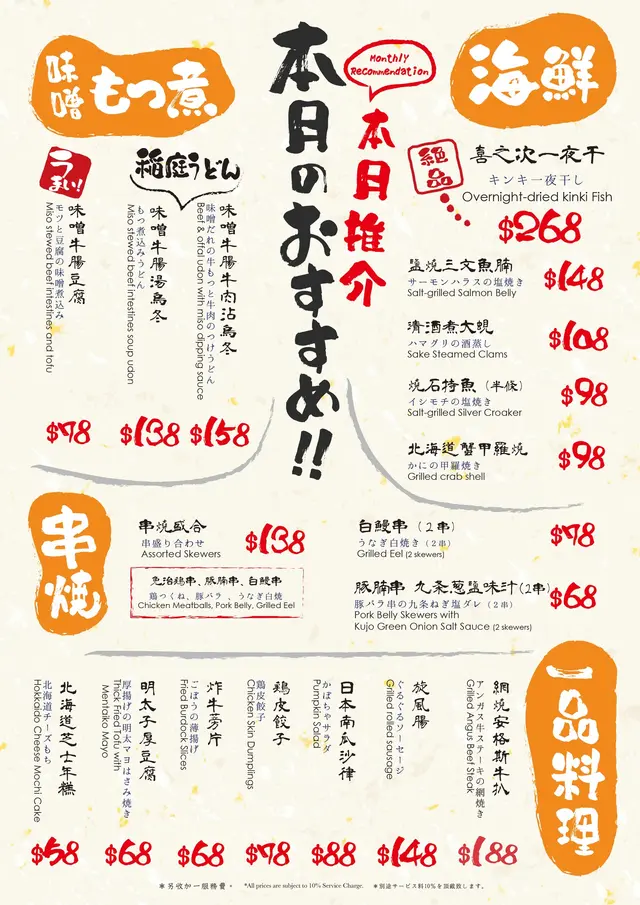 味噌もつ煮
本日のおすすめ!!
Monthly
Recommendation
本日推介
海鮮
絶品
喜之次一夜干
キンキ一夜干し
Overnight-dried kinki Fish
$268
鹽燒三文魚腩
サーモンハラスの塩焼き
Salt-grilled Salmon Belly
$148
清酒煮大蜆
ハマグリの酒蒸し
Sake Steamed Clams
$108
燒石持魚（半條）
イシモチの塩焼き
Salt-grilled Silver Croaker
$98
北海道蟹甲羅燒
かにの甲羅焼き
Grilled crab shell
$98
うまい!
味噌牛腸豆腐
モツと豆腐の味噌煮込み
Miso stewed beef intestines and tofu
$78
稲庭うどん
味噌牛腸湯烏冬
もつ煮込みうどん
Miso stewed beef intestines soup udon
$138
味噌牛腸牛肉沾烏冬
味噌だれの牛もつと牛肉のつけうどん
Beef & offal udon with miso dipping sauce
$158
串燒
串燒盛合
串盛り合わせ
Assorted Skewers
$138
免治鶏串、豚腩串、白鰻串
鶏つくね、豚バラ 、うなぎ白焼
Chicken Meatballs, Pork Belly, Grilled Eel
白鰻串（2串）
うなぎ白焼き（2串）
Grilled Eel (2 skewers)
$78
豚腩串 九条葱鹽味汁(2串)
豚バラ串の九条ねぎ塩ダレ（2串）
Pork Belly Skewers with
Kujo Green Onion Salt Sauce (2 skewers)
$68
一品料理
網燒安格斯牛扒
アンガス牛ステーキの網焼き
Grilled Angus Beef Steak
$188
旋風腸
ぐるぐるソーセージ
Grilled rolled sausage
$148
日本南瓜沙律
かぼちゃサラダ
Pumpkin Salad
$88
鶏皮餃子
鶏皮餃子
Chicken Skin Dumplings
$78
炸牛蒡片
ごぼうの薄揚げ
Fried Burdock Slices
$68
明太子厚豆腐
厚揚げの明太マヨはさみ焼き
Thick Fried Tofu with
Mentaiko Mayo
$68
北海道芝士年糕
北海道チーズもち
Hokkaido Cheese Mochi Cake
$58
＊另收加一服務費。
*All prices are subject to 10% Service Charge.
＊別途サービス料10％を頂戴致します。